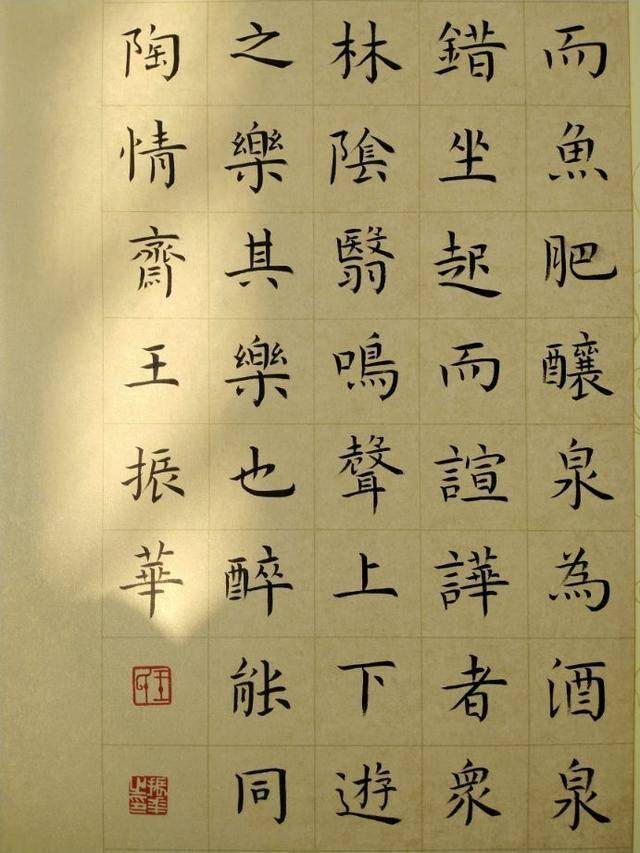 而魚肥釀泉為酒泉
錯坐起而諠譁者衆
林陰翳鳴聲上下遊
之樂其樂也醉能同
陶情齋王振華